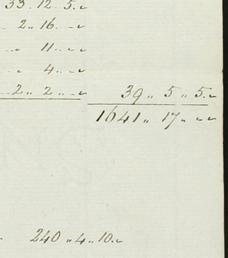 33.. 12.. 5..
2.. 16.. -..
-.. 11.. -..
-.. 4.. -..
2.. 2.. -.. 39.. 5.. 5..
1641.. 17.. -..
240.. 4.. 10..